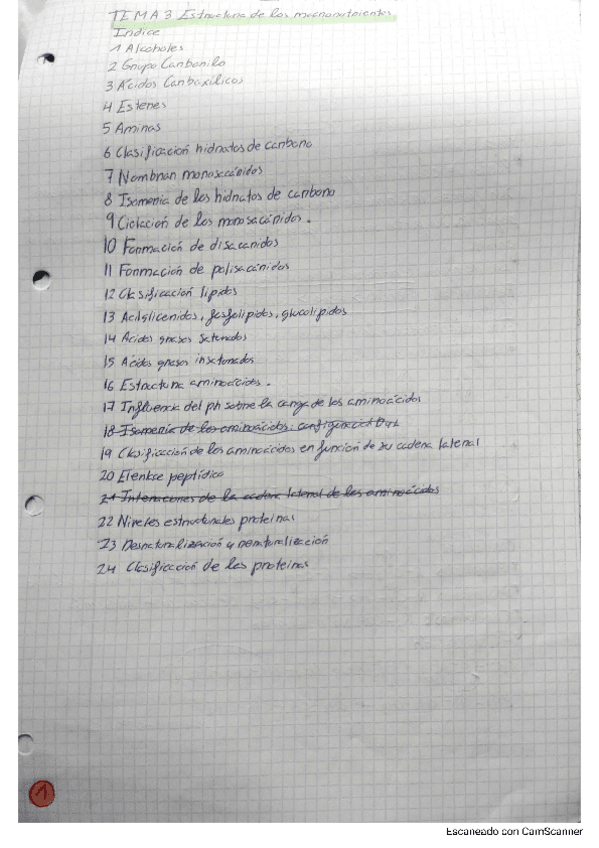 TEMA 3 Estructura de los macronutrientes
Indice
1 Alcoholes
2 Grupo Carbonilo
3 Acidos Carboxilicos
4 Esteres
5 Aminas
6 Clasificación hidratos de carbono
7 Nombrar monosacáridos
8 Isomeria de los hidratos de carbono
9 Ciclación de los monosacáridos.
10 Formación de disacaridos
11 Formación de polisacáridos
12 Clasificación lipidos
13 Acilgliceridos, fosfolipidos, glucolipidos
14 Acidos grasos saturados
15 Acidos grasos insaturados
16 Estructura aminoácidos.
17 Influencia del ph sobre la carga de los aminoácidos
18 Isomeria de los aminoácidos: configuración D y L
19 Clasificación de los aminoácidos en función de su cadena lateral
20 Elenlace peptídico
21 Interacciones de la cadena lateral de los aminoácidos
22 Niveles estructurales proteinas
23 Desnaturalización y renaturalización
24 Clasificación de las proteinas
1
Escaneado con CamScanner